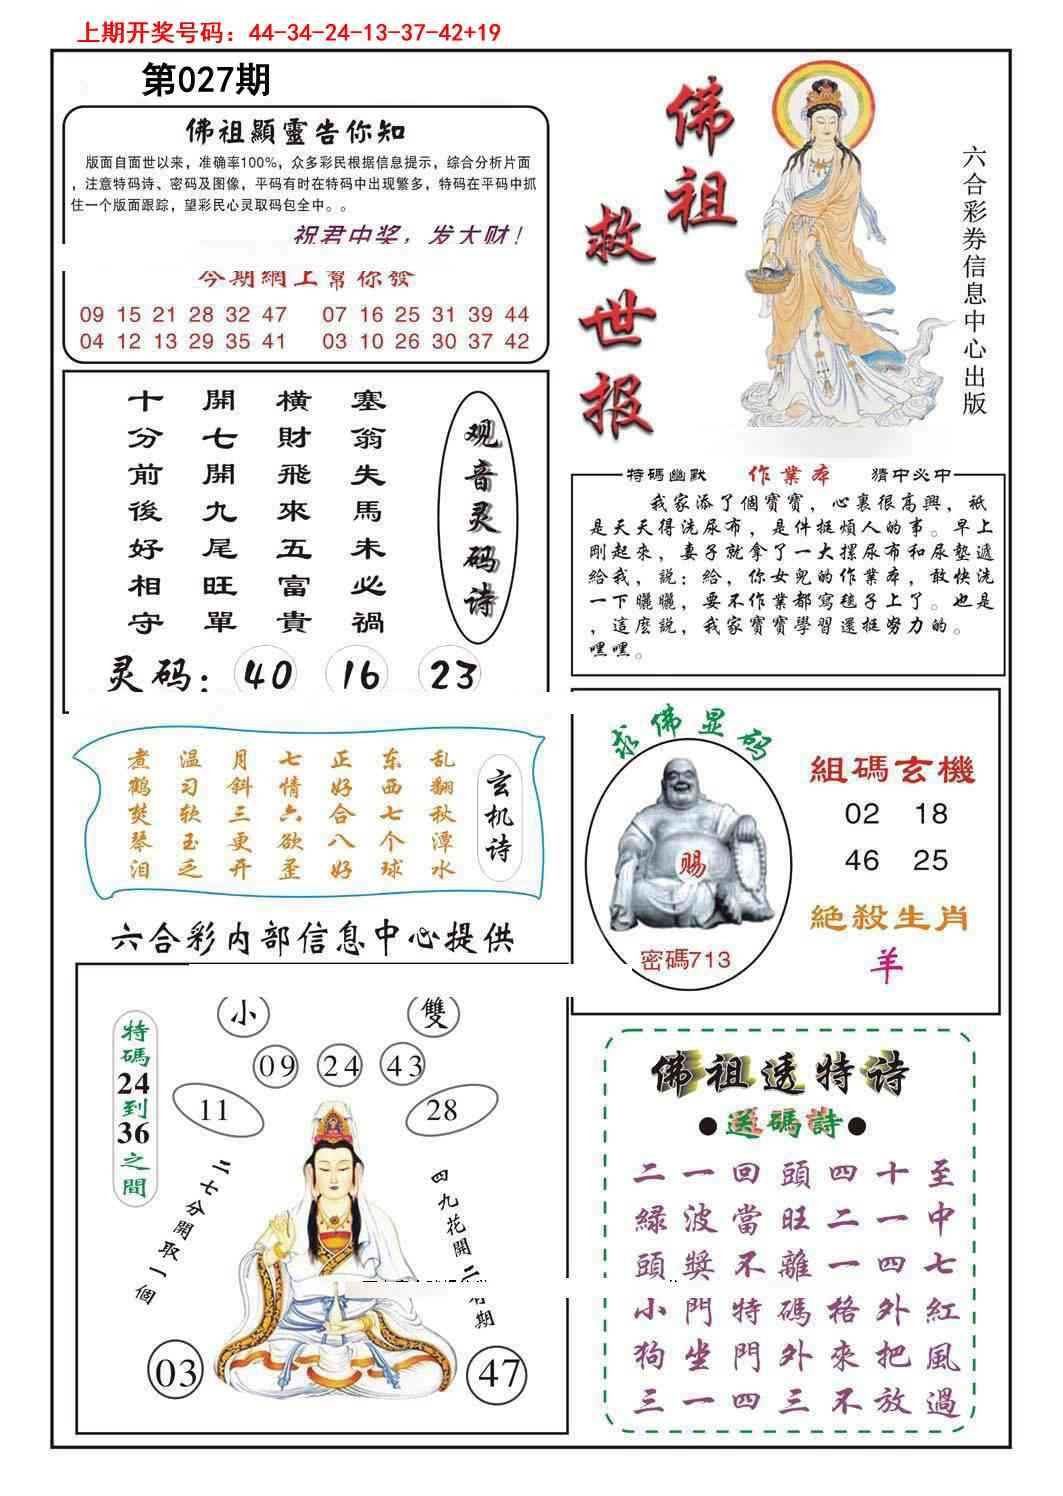 上期开奖号码：44-34-24-13-37-42+19
第027期
佛祖顯靈告你知
版面自面世以来，准确率100%，众多彩民根据信息提示，综合分析片面
，注意特码诗、密码及图像，平码有时在特码中出现繁多，特码在平码中抓
住一个版面跟踪，望彩民心灵取码包全中。。
祝君中奖，发大财！
今期網上幫你發
09 15 21 28 32 47 07 16 25 31 39 44
04 12 13 29 35 41 03 10 26 30 37 42
佛祖救世报
六合彩券信息中心出版
观音灵码诗
塞翁失馬未必禍
橫財飛來五富貴
開七開九尾旺單
十分前後好相守
灵码：40 16 23
特碼幽默 作業本 猜中必中
我家添了個寶寶，心裏很高興，祇
是天天得洗尿布，是件挺煩人的事。早上
剛起來，妻子就拿了一大摞尿布和尿墊遞
給我，説：給，你女兒的作業本，敢快洗
一下曬曬，要不作業都寫毯子上了。也是
，這麽説，我家寶寶學習還挺努力的。
嘿嘿。
玄机诗
乱翻秋潭水
东西七个球
正好合八好
七情六欲歪
月斜三更开
温习软玉乏
煮鹤焚琴泪
求佛显码
赐
密碼713
組碼玄機
02 18
46 25
絶殺生肖
羊
六合彩内部信息中心提供
小 雙
09 24 43
11 28
特碼24到36之間
二七分開取一個
四九花開二
期
03 47
佛祖透特诗
●送碼詩●
二一回頭四十至
緑波當旺二一中
頭獎不離一四七
小門特碼格外紅
狗坐門外來把風
三一四三不放過